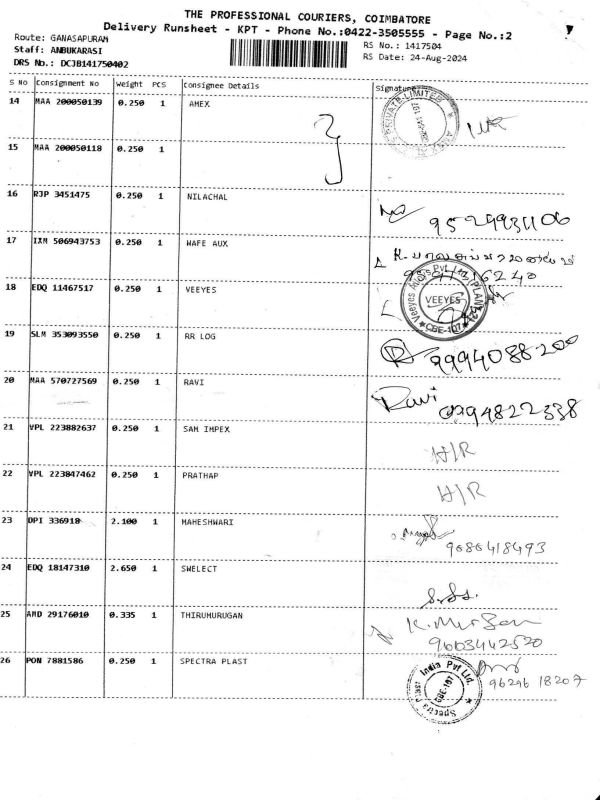 THE PROFESSIONAL COURIERS, COIMBATORE
Delivery Runsheet - KPT - Phone No.:0422-3505555 - Page No.:2
Route: GANASAPURAM
RS No.: 1417504
Staff: ANBUKARASI
RS Date: 24-Aug-2024
DRS No.: DCJB141750402
S No Consignment No Weight PCS Consignee Details Signature
14 MAA 200050139 0.250 1 AMEX
PRIVATE LIMITED
15 MAA 200050118 0.250 1
16 RJP 3451475 0.250 1 NILACHAL
9529931106
17 IXM 506943753 0.250 1 WAFE AUX
18 EDQ 11467517 0.250 1 VEEYES
VEEYES
CBE-107
19 SLM 353093550 0.250 1 RR LOG
9994088200
20 MAA 570727569 0.250 1 RAVI
Ravi
9994822338
21 VPL 223882637 0.250 1 SAM IMPEX
H/R
22 VPL 223847462 0.250 1 PRATHAP
H/R
23 DPI 336918 2.100 1 MAHESHWARI
9086418493
24 EDQ 18147310 2.650 1 SWELECT
25 AMD 29176010 0.335 1 THIRUMURUGAN
K. Murugan
9603442520
26 PON 7881586 0.250 1 SPECTRA PLAST
Spectra Plast India Pvt Ltd.
CBE-107
96296 18207